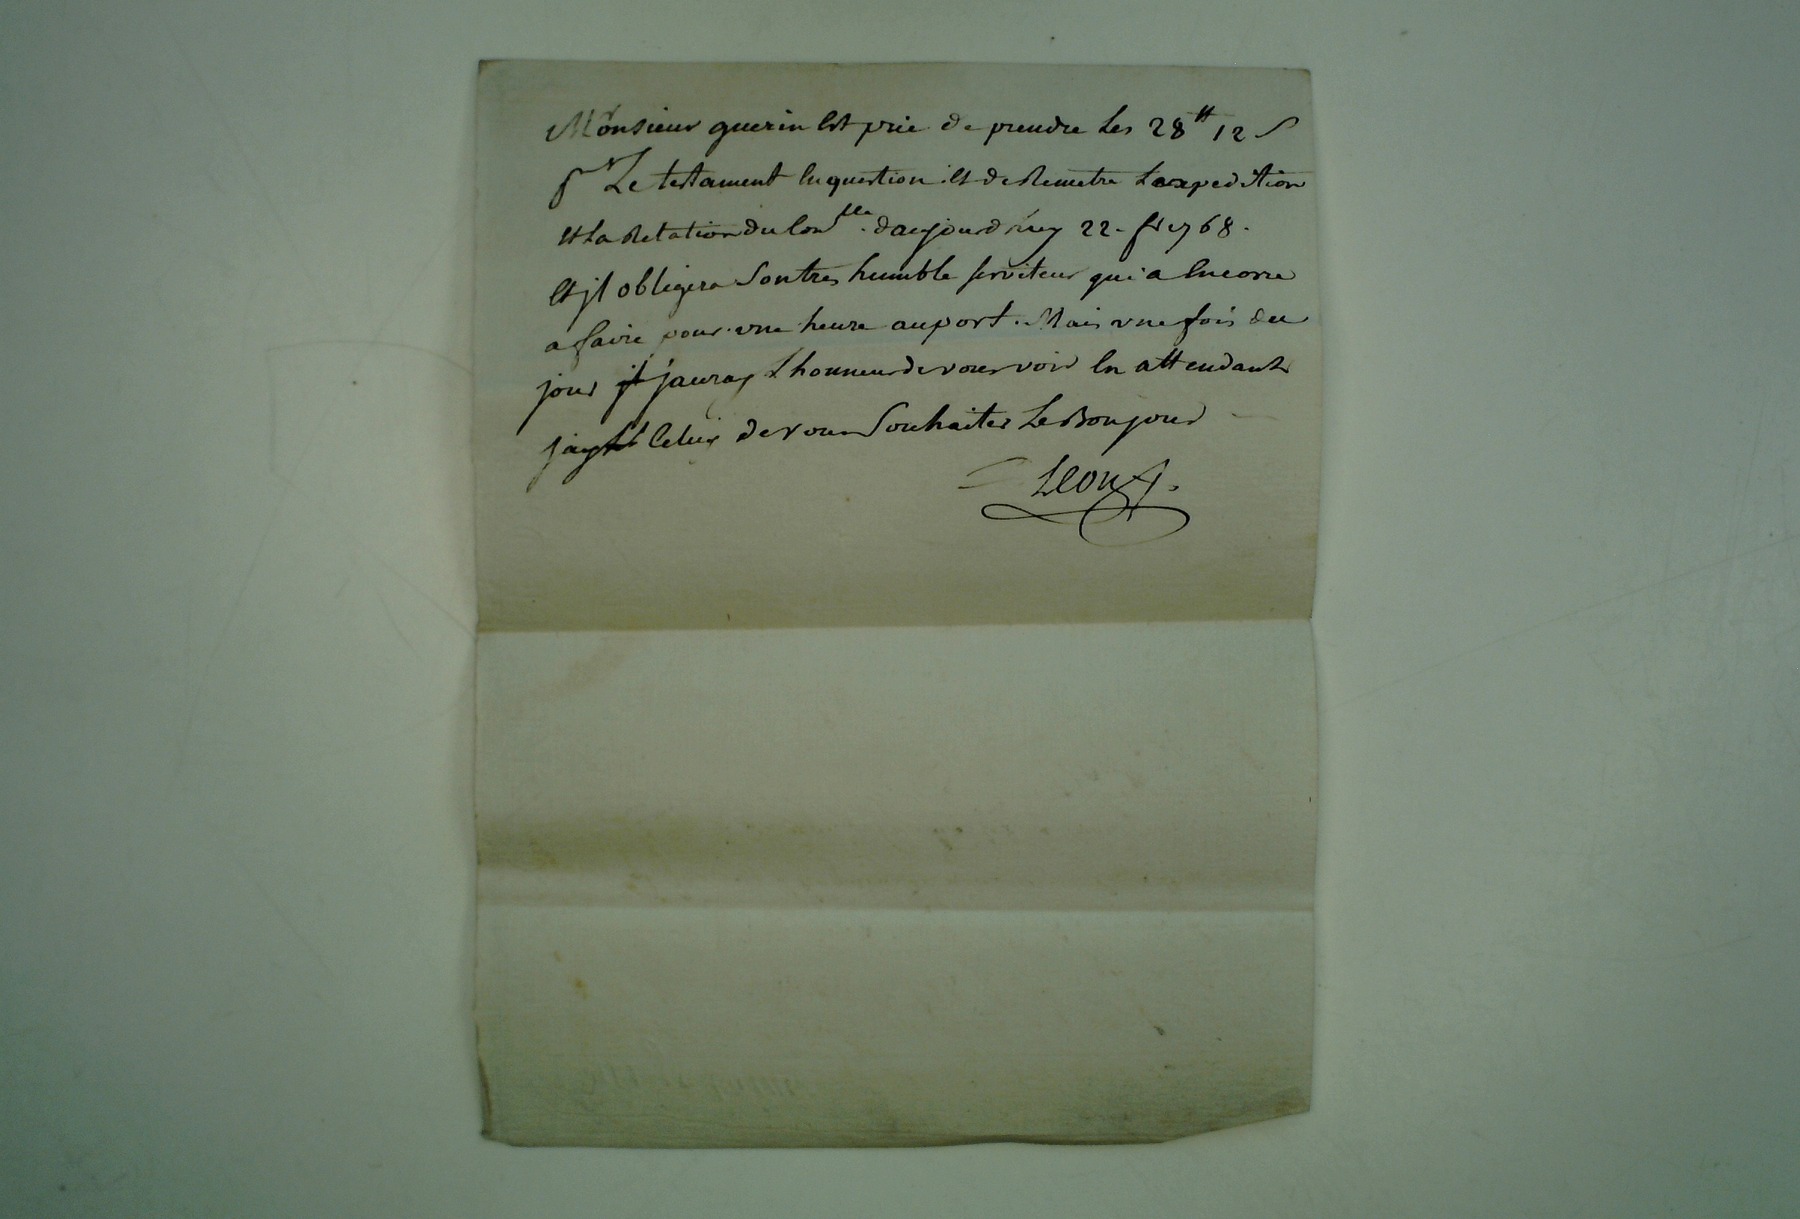 Monsieur guerin Est prie de prendre Les 28 tt 12 s
pr Le testament En question et de Remetre Lexpedition
et La Relation du Con lle. daujourdhuy 22. 1768.
et jl obligera Son tres humble serviteur qui a Encorre
a faire pour vne heure au port. Mais vne fois du
jour jl jauray Lhonneur de vous voir En attendant
jay Celuy de vous Souhaiter Le Bonjour
Leon